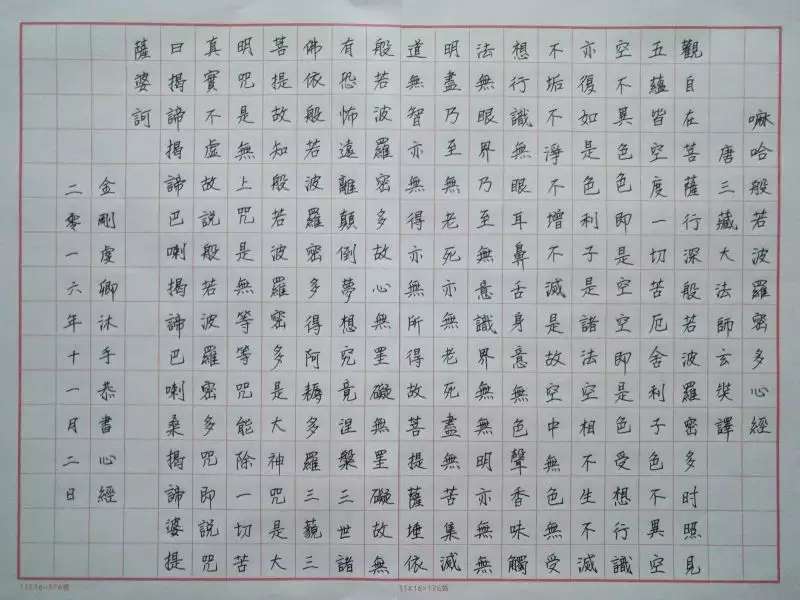 嘛哈般若波羅密多心經
唐三藏大法師玄奘譯
觀自在菩薩行深般若波羅密多时照見
五蘊皆空度一切苦厄舍利子色不異空
空不異色色即是空空即是色受想行識
亦復如是色利子是諸法空相不生不滅
不垢不淨不增不滅是故空中無色無受
想行識無眼耳鼻舌身意無色聲香味觸
法無眼界乃至無意識界無無明亦無無
明盡乃至無老死亦無老死盡無苦集滅
道無智亦無得亦無所得故菩提薩埵依
般若波羅密多故心無罣礙無罣礙故無
有恐怖遠離顛倒夢想究竟涅槃三世諸
佛依般若波羅密多得阿耨多羅三藐三
菩提故知般若波羅密多是大神咒是大
明咒是無上咒是無等等咒能除一切苦
真實不虛故說般若波羅密多咒即說咒
曰揭諦揭諦巴喇揭諦巴喇桑揭諦婆提
薩婆訶
金剛虔卿沐手恭書心經
二零一六年十一月二日
11X16=176格
11X16=176格